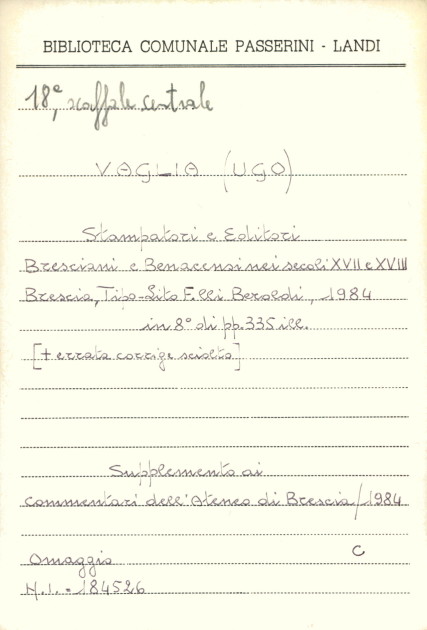 BIBLIOTECA COMUNALE PASSERINI - LANDI
18e, scaffale centrale
VAGLIA (UGO)
Stampatori e Editori
Bresciani e Benacensi nei secoli XVII e XVIII
Brescia, Tipo-Lito F.lli Geroldi, 1984
in 8° di pp. 335 ill.
[+ errata corrige sciolto]
Supplemento ai
commentari dell'Ateneo di Brescia/1984
Omaggio C
N.I. = 184526